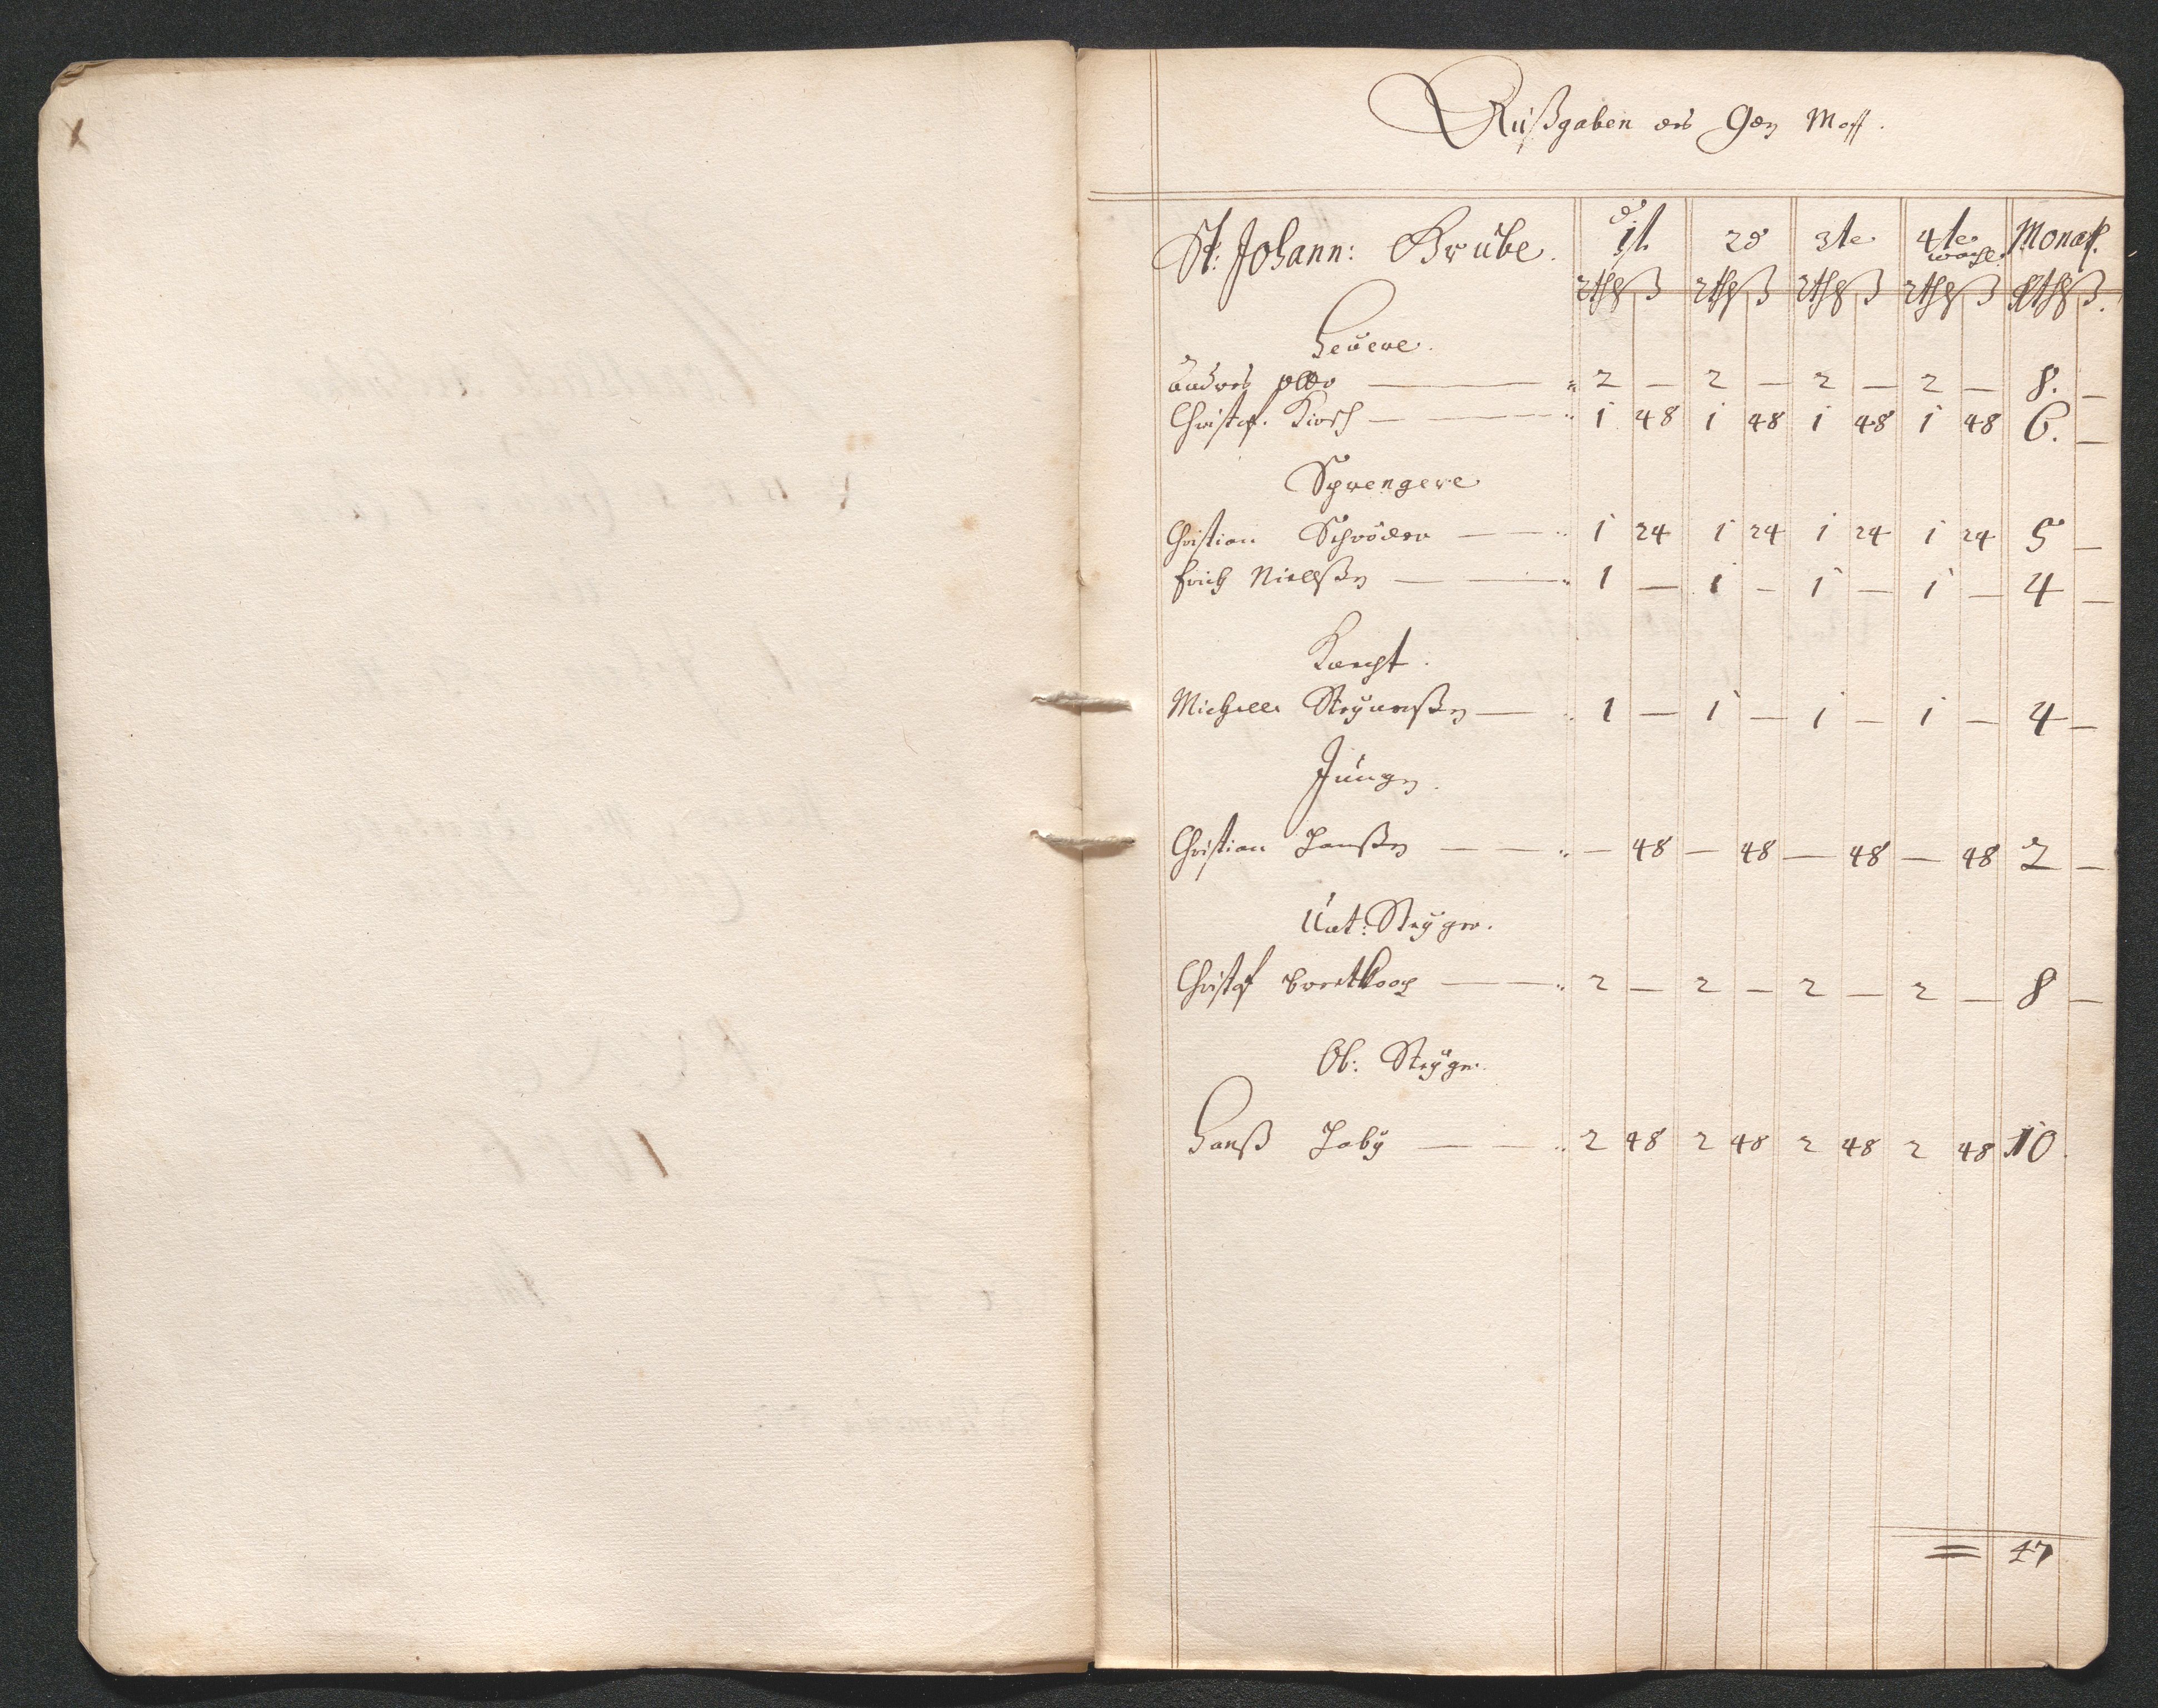 Außgaben des 9den Mo.
St: Johann: Grube. 1st 2d 3te 4te woche Monat.
Rthß Rthß Rthß Rthß Rthß.
Heüere.
Andres Otto — " 2 — 2 — 2 — 2 — 8. —
Christof. Kirsch — " 1 48 1 48 1 48 1 48 6. —
Sprengere
Christian Schröder — " 1 24 1 24 1 24 1 24 5 —
Erich Nielßen — " 1 — 1 — 1 — 1 — 4 —
Knecht.
Michell — 1 — 1 — 1 — 1 — 4 —
Jungen.
Christian Janßen — " — 48 — 48 — 48 — 48 2 —
Unt: Steyger.
Christof Breetkoop — " 2 — 2 — 2 — 2 — 8 —
Ob: Steyger.
Hanß Joby — " 2 48 2 48 2 48 2 48 10
47